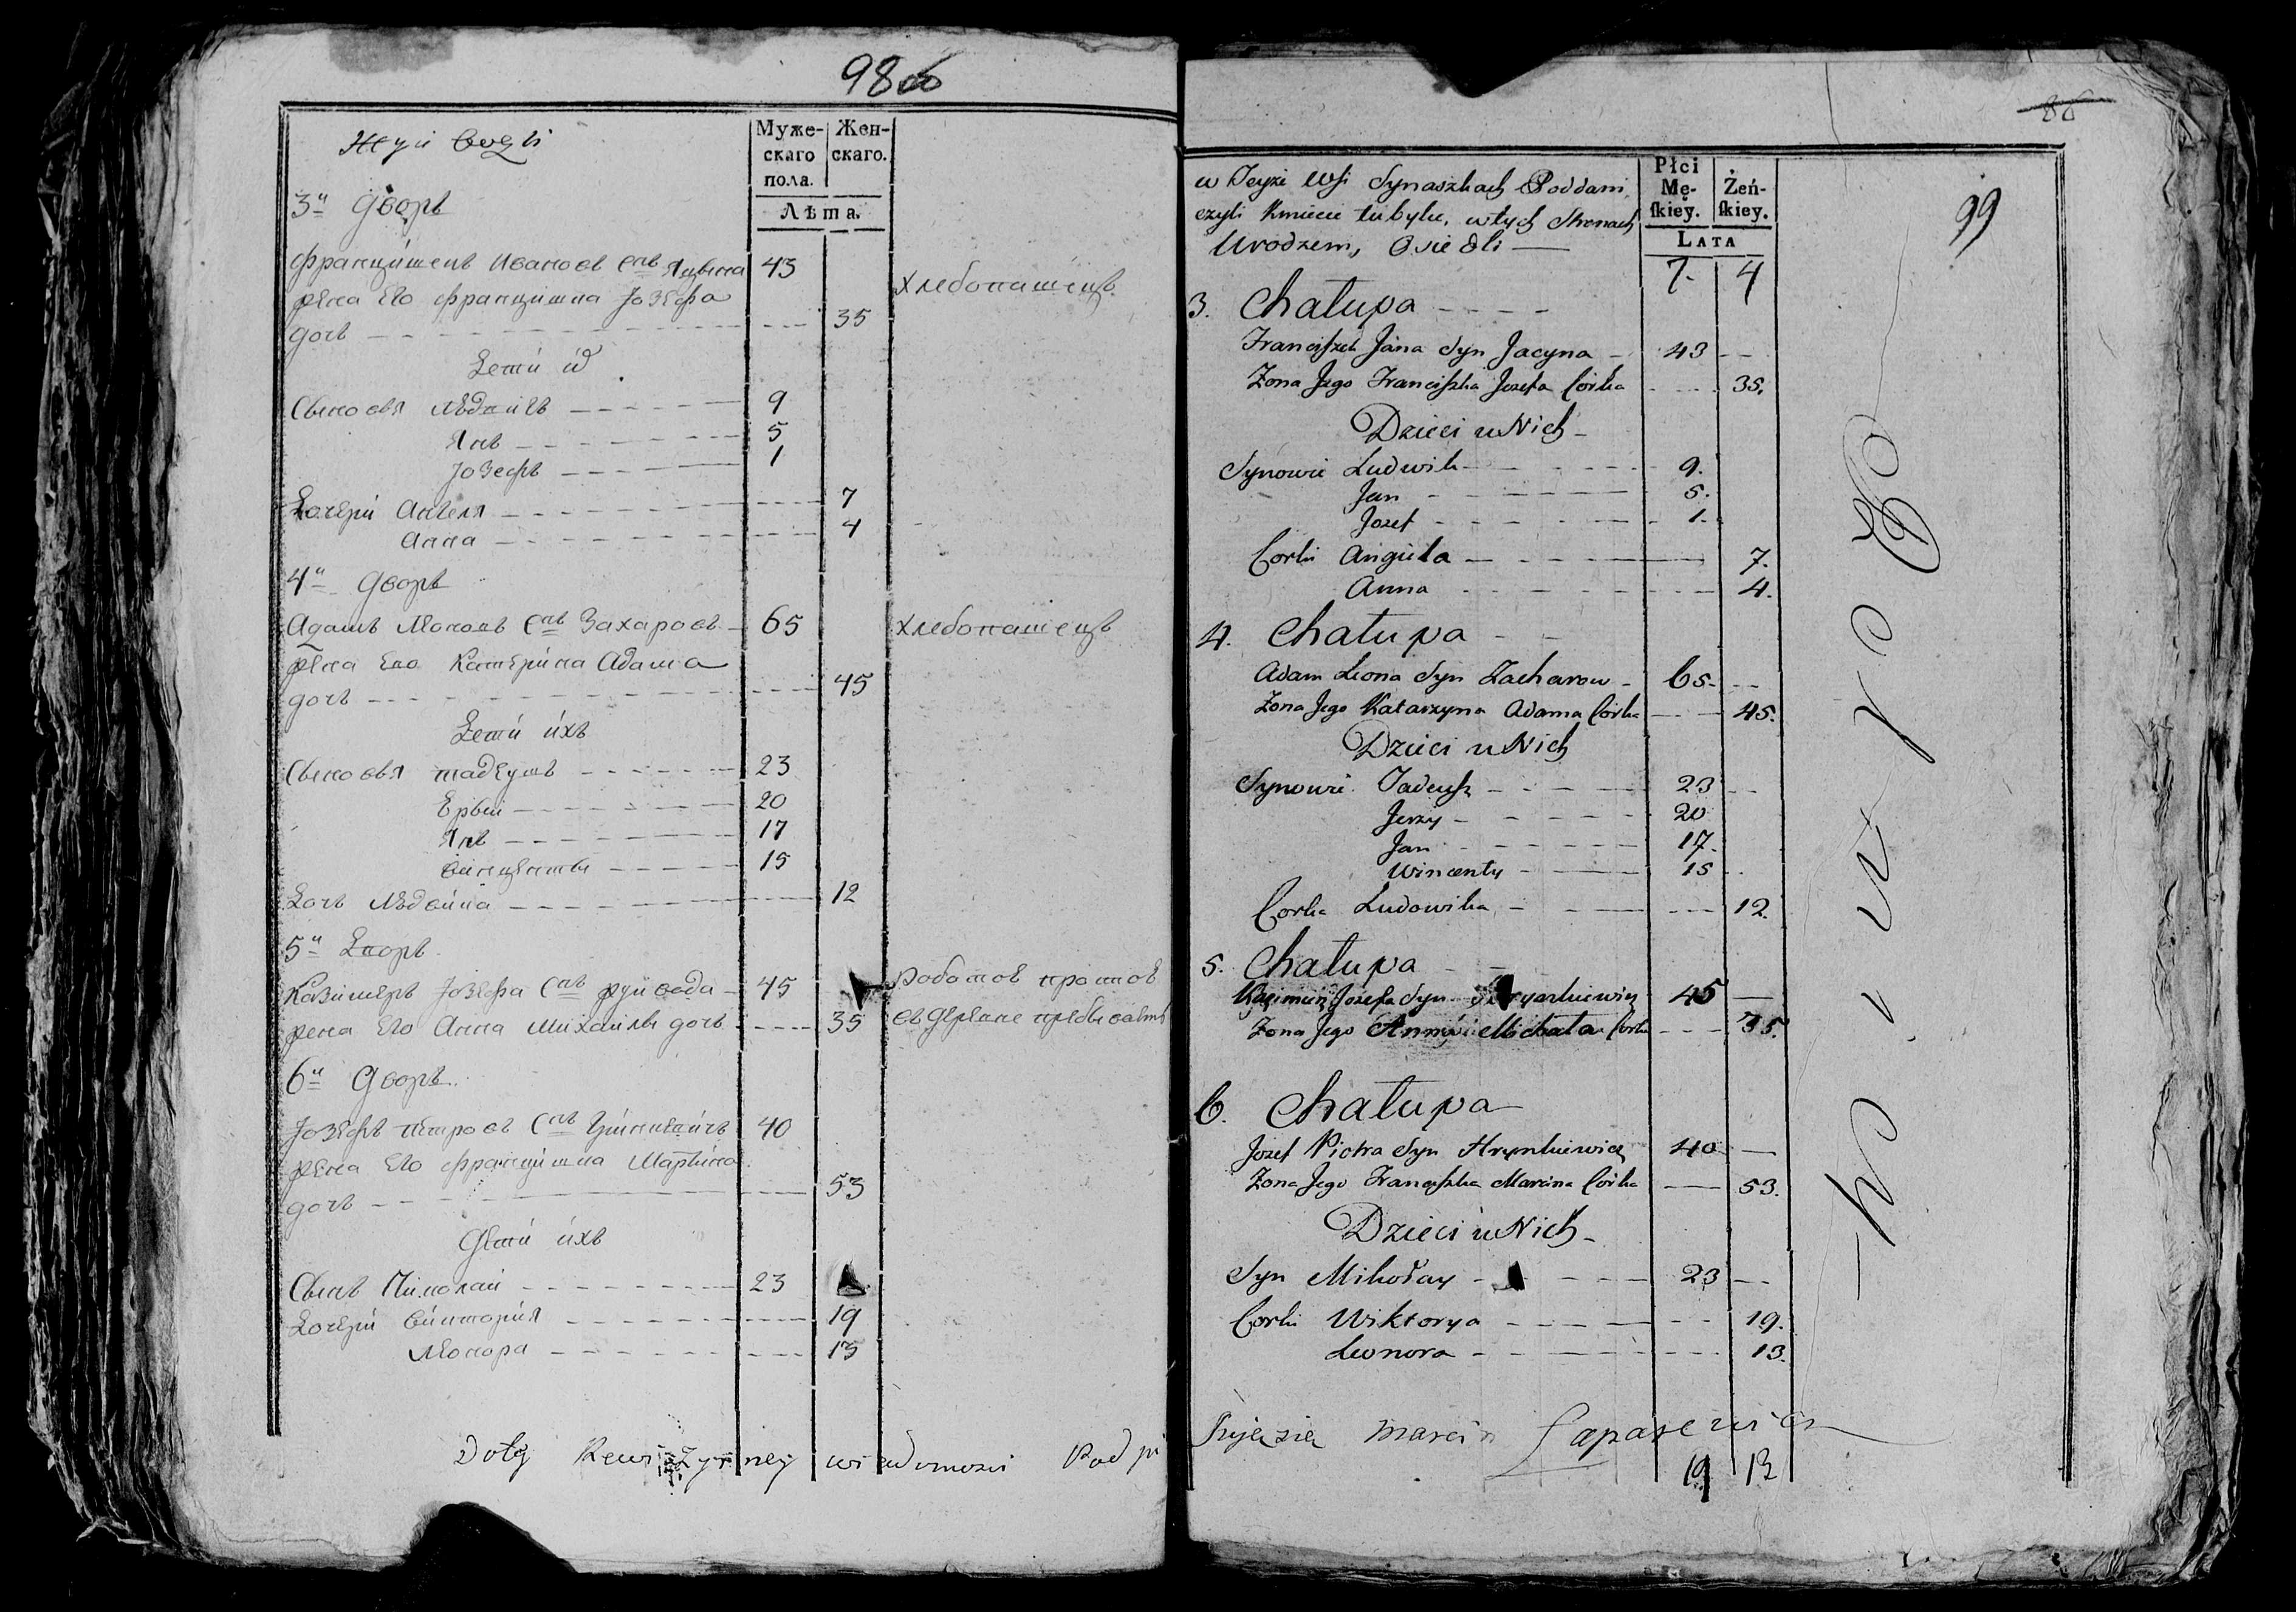 98об
Муже- Жен-
скаго скаго.
пола.
Лѣта.
3й дворъ
Францишекъ Ивановъ снъ Яцына 43 хлебопашецъ
жена Его францишка Јозефа
дочъ 35
Сыновя Людвикъ 9
Янъ 5
Јозефъ 1
Дочери Ангеля 7
Анна 4
4й дворъ
Адамъ Леоновъ Снъ Захаровъ 65 хлебопашецъ
жена Его Катерина Адама
дочъ 45
Дети ихъ
Сыновя тадеушъ 23
Ержи 20
Янъ 17
винценты 15
Дочъ Людвика 12
5й Дворъ
Казимеръ Јозефа Снъ 45
жена Его Анна Михайлы дочъ 35
6й Дворъ
Јозефъ петровъ Снъ Гринкевичъ 40
жена Его францишка Марцина
дочъ 53
Дети ихъ
Сынъ Николай 23
Дочери Виктория 19
Леонора 13
Do tey Rewizyiney wiadomosci Podpi
86
99
w Teyże wsi Synaszkach Poddani
czyli Kmiecie tubylce, w tych Stronach
Urodzeni, Osiedli
Płci
Mę- Żeń-
ſkiey. ſkiey.
LATA
7. 4
3. Chałupa
Franciszek Jana Syn Jacyna 43
Żona Jego Franciszka Jozefa Corka 35.
Dzieci u Nich
Synowie Ludwik 9.
Jan 5.
Jozef 1.
Corki Angiela 7.
Anna 4.
4. Chałupa
Adam Leona Syn Zacharow 65.
Żona Jego Katarzyna Adama Corka 45.
Dzieci u Nich
Synowie Tadeusz 23
Jerzy 20
Jan 17.
Wincenty 15
Corka Ludowika 12.
5. Chałupa
Kazimierz Jozefa Syn 45
Żona Jego Anna Michała Corka 35.
6. Chałupa
Jozef Piotra Syn Hrynkiewicz 40
Żona Jego Franciszka Marcina Corka 53.
Dzieci u Nich
Syn Mikołay 23
Corki Wiktorya 19.
Leonora 13.
Marcin Łapasewicz
19 13